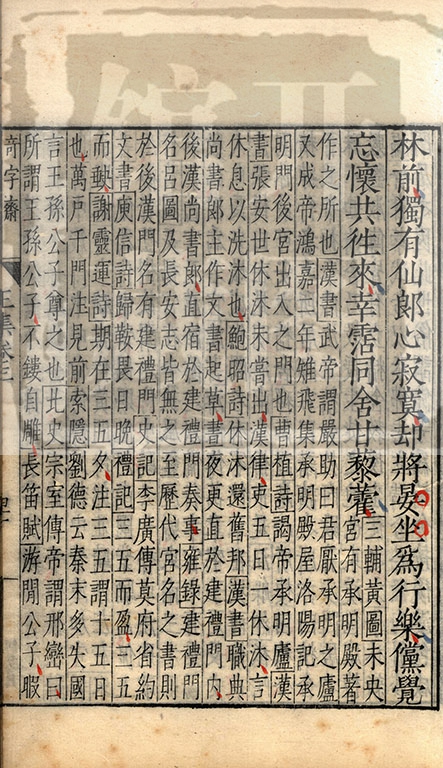 林前獨有仙郎心寂寞却將晏坐爲行樂儻覺
忘懷共往來幸霑同舍甘藜藿三輔黃圖未央宮有承明殿著
作之所也漢書武帝謂嚴助曰君厭承明之廬
又成帝鴻嘉二年雉飛集承明殿屋洛陽記承
明門後宮出入之門也曹植詩謁帝承明廬漢
書張安世休沐未嘗出漢律吏五日一休沐言
休息以洗沐也鮑昭詩休沐還舊邦漢書職典
尚書郎主作文書起草書夜更直於建禮門內
後漢尚書郎直宿於建禮門奏事雍錄建禮門
名呂圖及長安志皆無之至歷代宮名之書則
於後漢門名有建禮門史記李廣傳莫府省約
文書庾信詩歸鞍畏日晚禮記三五而盈三五
而𡙇謝靈運詩期在三五夕注三五謂十五日
也萬戶千門注見前索隱劉德云秦末多失國
言王孫公子尊之也北史宗室傳帝謂邢巒曰
所謂王孫公子不鏤自雕長笛賦游閒公子暇
奇字齋